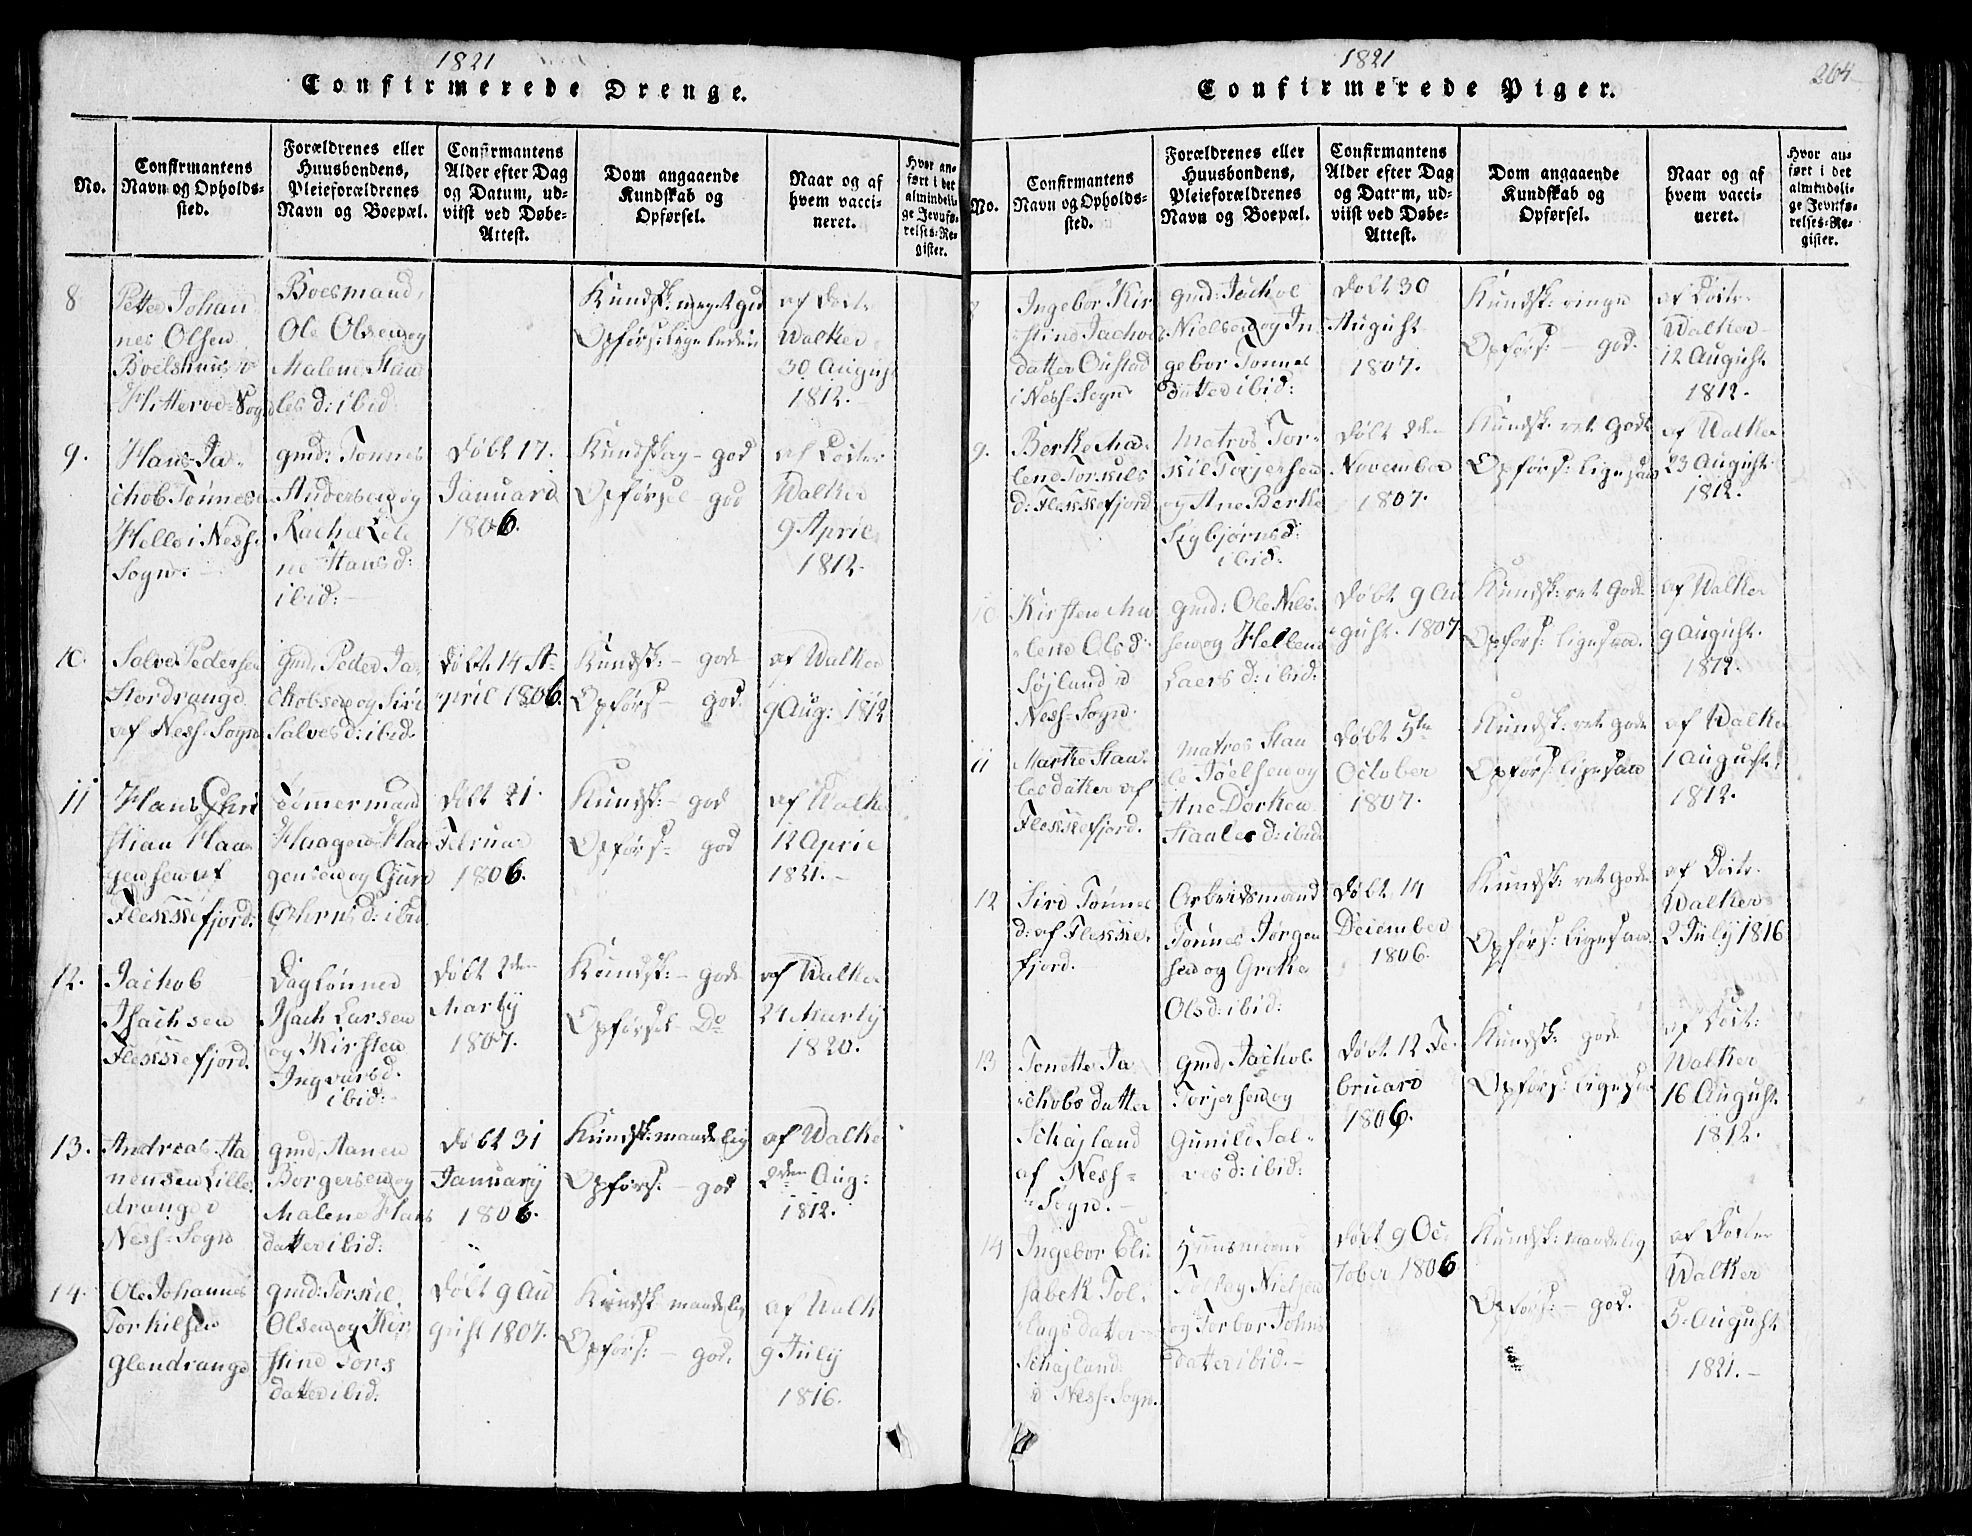 1821
Confirmerede Drenge.
No.
Confirmantens
Navn og Opholds-
sted.
Forældrenes eller
Huusbondens,
Pleieforældrenes
Navn og Boepæl.
Confirmantens
Alder efter Dag
og Datum, ud-
viist ved Døbe-
Attest.
Dom angaaende
Kundskab og
Opførsel.
Naar og af
hvem vacci-
neret.
Hvor an-
ført i det
almindeli-
ge Jevnfø-
relses-Re-
gister.
8
Petter Johan
nes Olsen
Hitterøe Sogn
Boesmand
Ole Olsen og
Malene Staa
les d: ibid:
Kundsk: meget gd
Opførs: ligeledes
af Doctr
Walker
30 August
1812.
9.
Hans Ja-
chob Tønnes
Helle i Ness-
Sogn.
gmd: Tønnes
Andersen og
Rachel Le
ne Hans d:
ibid:
Døbt 17.
Januari
1806.
Kundskab - god
Opførsel god
af Docter
Walker
9 April
1812.
10.
Salve Pedersen
Stordrange
af Ness-Sogn
gmd, Peder Ja-
chobsen og Siri
Salves d: ibid.
Døbt 14 A-
pril 1806.
Kundsk: - god
Opførs - god.
af Walker
9 Aug: 1812
11
Hans Chri
stian Haa-
gensen af
Flekkefjord.
Tømermand
Haagen Haa
gensen og Guro
d: ibid
Døbt 21.
Februar
1806.
Kundsk: - god
Opførs - god
af Walker
12 April
1821.
12.
Jachob
Isachsen
Flekkefjord.
Daglønner
Isach Larsen
og Kirsten
Ingvars d.
ibid:
Døbt 2den
Marty
1807.
Kundsk: - god
Opførsel - Do
af Walker
24 Marty
1820.
13.
Andreas Aa
nensen Lille
drange
Ness-Sogn
gmd, Aanen
Børgersen og
Malene Hans
datter ibid:
Døbt 31
January
1806.
Kundsk: maadelig
Opførs: - god
af Walker
Aug:
1812.
14.
Ole Johannes
Torkilsen
Glendrange
gmd: Torkil
Olsen og Kir
stine Tors
datter ibid.
Døbt 9 Au
gust 1807.
Kundsk maadelig
Opførs: - god.
af Walk
9 July
1816.
1821
264
Confirmerede Piger.
No.
Confirmantens
Navn og Opholds-
sted.
Forældrenes eller
Huusbondens,
Pleieforældrenes
Navn og Boepæl.
Confirmantens
Alder efter Dag
og Datum, ud-
viist ved Døbe-
Attest.
Dom angaaende
Kundskab og
Opførsel.
Naar og af
hvem vacci-
neret.
Hvor an-
ført i det
almindeli-
ge Jevnfø-
relses-Re-
gister.
8
Ingebor Kir
stine Jachobs
datter
i Ness-Sogn
gmd: Jachob
Nielsen og In
gebor Tønnes
datter ibid:
Døbt 30
August
1807.
Kundsk: ringe
Opførs: - god.
af Doctr.
Walker
12 August
1812.
9.
Berthe Ma-
lene Torkils
d: Flekkefjord
Matros Tor-
kil Torjersen
og Ane Berthe
Sigbjørns d:
ibid:
Døbt 2den
November
1807.
Kundsk: ret god
Opførs: ligesaa
af Walker
23 August
1812.
10
Kirsten Ma
lene Ols d:
Ness-Sogn.
gmd: Ole Nils
sen og Hellene
Laers d: ibid:
Døbt 9 Au
gust. 1807
Kundsk: ret god
Opførs: ligesaa.
af Walker
9 August.
1812.
11
Marthe Staa-
lesdatter af
Flekkefjord.
Matros Staa
le Joelsen og
Ane Dorthea
Staales d: ibid
Døbt 5te
October
1807.
Kundsk: ret god
Opførs: ligesaa
af Walke
1 August.
1812.
12
Siri Tønnes
d: af Flekke-
fjord.
Arbeidsmand
Tønnes Jørgen
sen og Grethe
Ols d: ibid:
Døbt 14
December
1806.
Kundsk: ret god.
Opførs: ligesaa.
af Doctr.
Walker
2 July 1816
13
Tonette Ja
chobs datter
Schøjland
af Ness-
Sogn.
gmd, Jachob
Torjersen og
Gunild Sal-
ves d: ibid:
Døbt 12 Fe
bruari
1806.
Kundsk: god
Opførs: ligesaa
af Doct:
Walker
16 August.
1812.
14
Ingebor Eli
sabeth Tol-
lags datter
Schøjland
i Ness-Sogn.
Huusmand
Tollag Nielsen
og Torbor Johns
datter ibid.
Døbt 9 Oc
tober 1806
Kundsk: maadelig
Opførs: - god.
af Docter
Walker
5 August
1821.